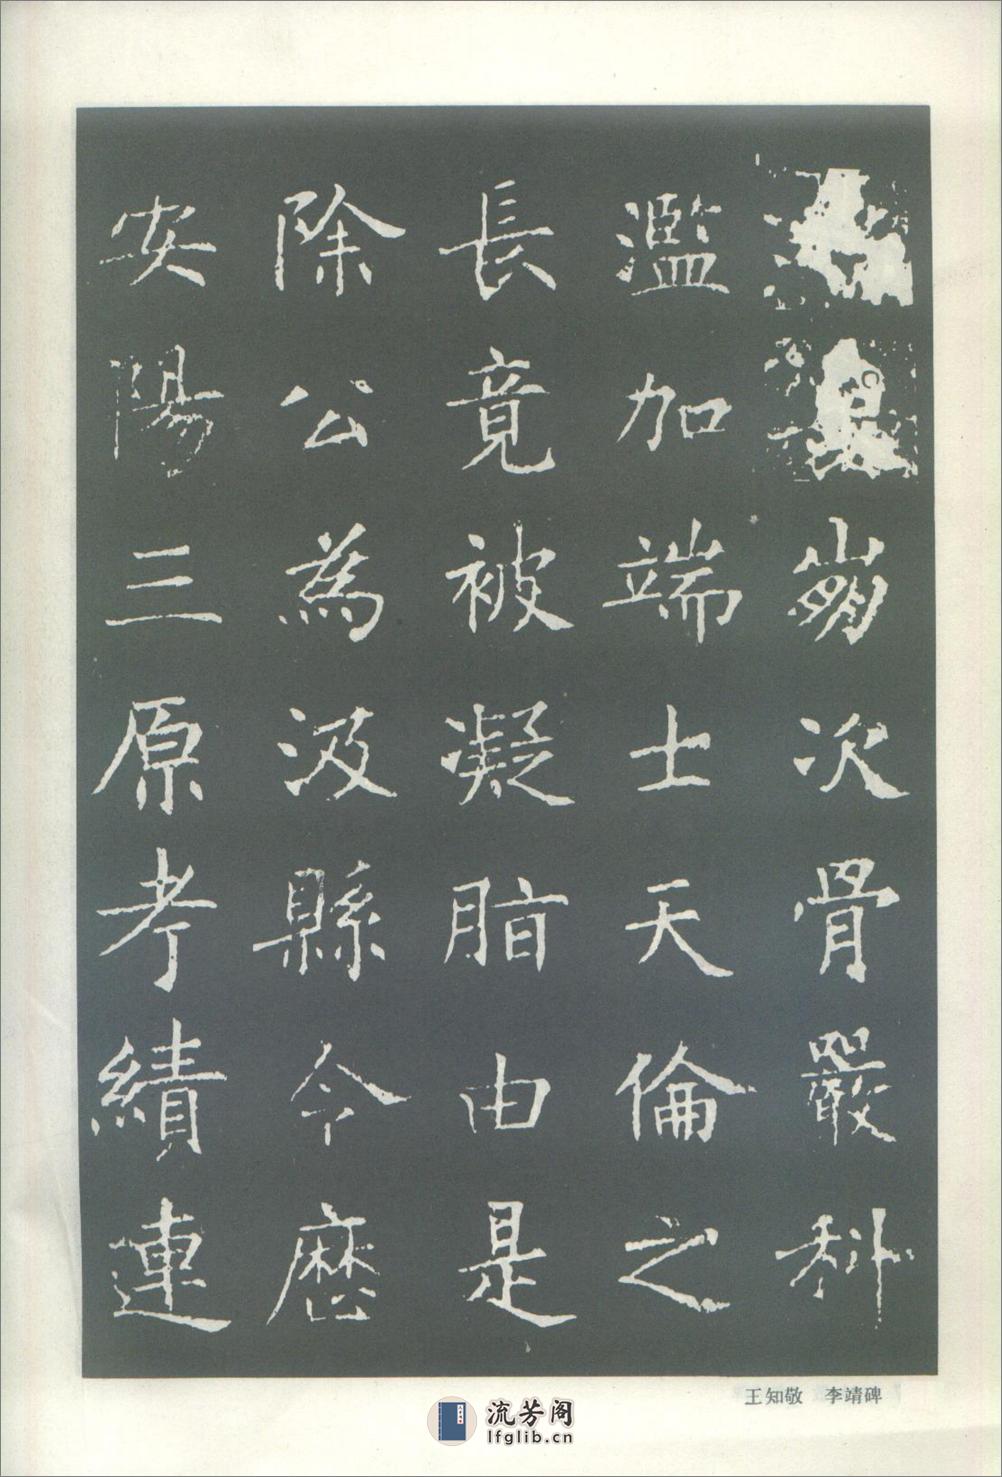 崩次骨嚴科
濫加端士天倫之
長竟被凝脂由是
除公為汲縣令歷
安陽三原考績連
王知敬 李靖碑
流芳阁
lfglib.cn